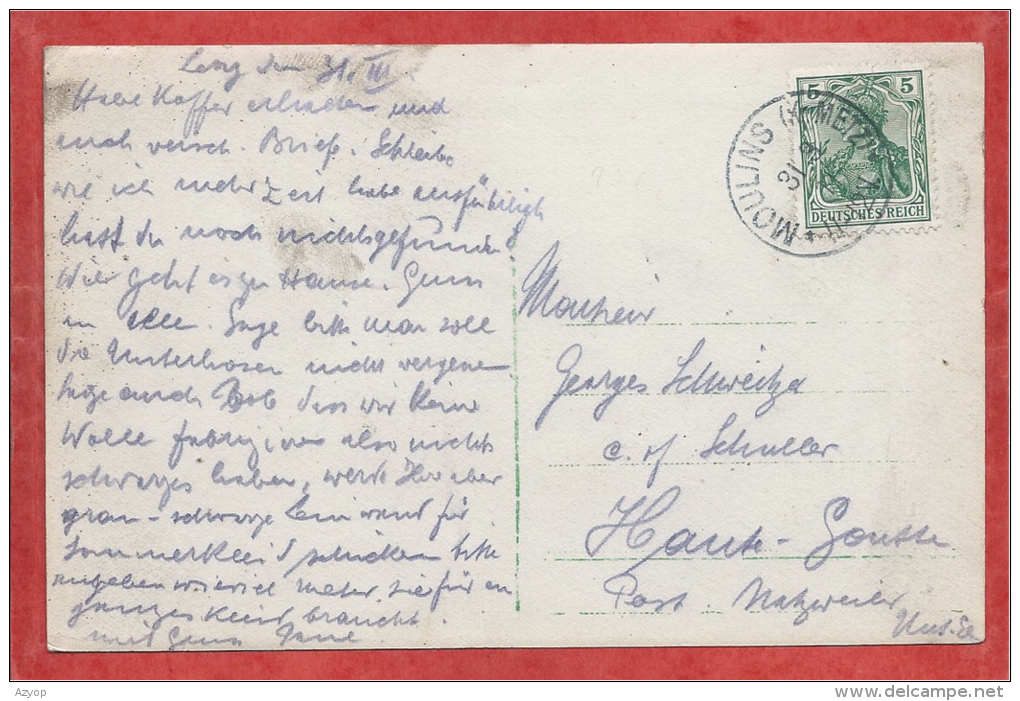 den 31. III
Habe Koffer erhalten und
auch versch. Briefe. Schreibe
wie ich mehr Zeit habe ausführlich
hast du noch nichts gefunden
Wie geht es zu Hause. Gruss
an alle. Sage bitte man soll
die Unterhosen nicht vergessen
sage auch Bob dass wir keine
Wolle also nichts
schwarzes haben, werde Ihr aber
grau-schwarze Leinwand für
Sommerkleid schicken bitte
angeben wieviel Meter sie für ein
ganzes Kleid braucht.
mit Gruss
5 5
DEUTSCHES REICH
MOULINS (K. METZ)
31 3
Monsieur
Georges Schweitzer
c. of Schuller
Haute-Goutte
Post Natzweiler
Unt. El
Azyop
www.delcampe.net